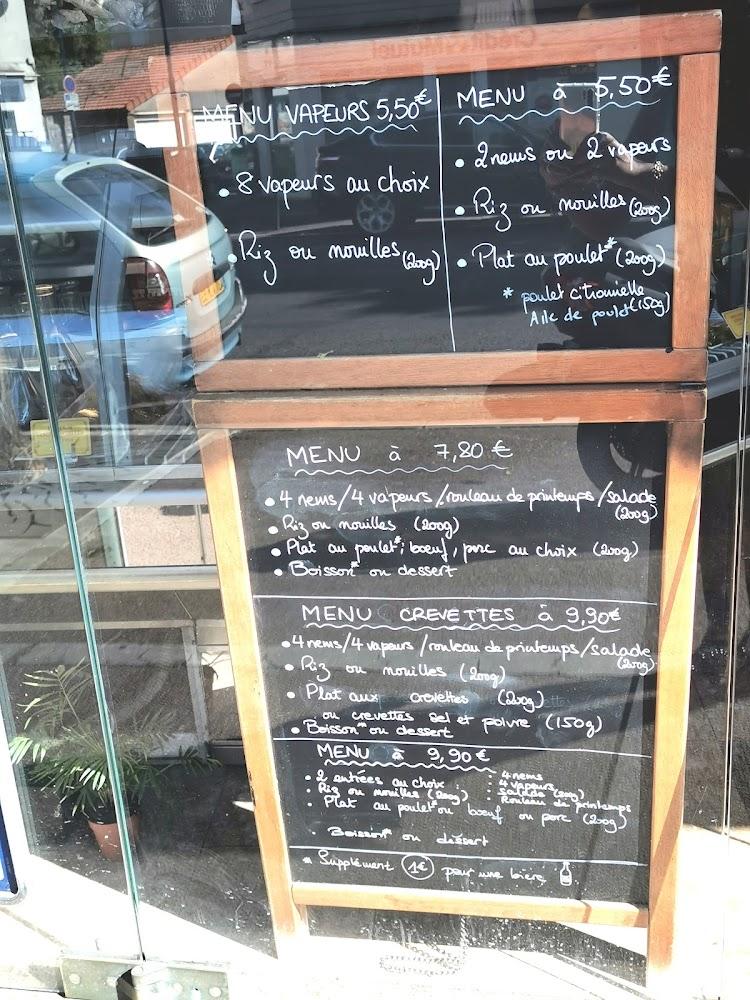 MENU VAPEURS 5,50€
• 8 vapeurs au choix
• Riz ou nouilles (200g)
MENU à 5,50€
• 2 nems ou 2 vapeurs
• Riz ou nouilles (200g)
• Plat au poulet* (200g)
* poulet citronnelle
Aile de poulet (150g)
MENU à 7,80 €
• 4 nems/4 vapeurs/rouleau de printemps/salade
(200g)
• Riz ou nouilles (200g)
• Plat au poulet*, bœuf, porc au choix (200g)
• Boisson* ou dessert
MENU CREVETTES à 9,90€
• 4 nems/4 vapeurs/rouleau de printemps/salade
(200g)
• Riz ou nouilles (200g)
• Plat aux crevettes (200g)
ou crevettes sel et poivre (150g)
• Boisson* ou dessert
MENU à 9,90 €
• 2 entrées au choix :
• 4 nems
• 4 vapeurs
• Salade (200g)
• Rouleau de printemps
• Riz ou nouilles (200g)
• Plat au poulet* ou bœuf ou porc (200g)
• Boisson* ou dessert
* Supplément 1€ pour une bière